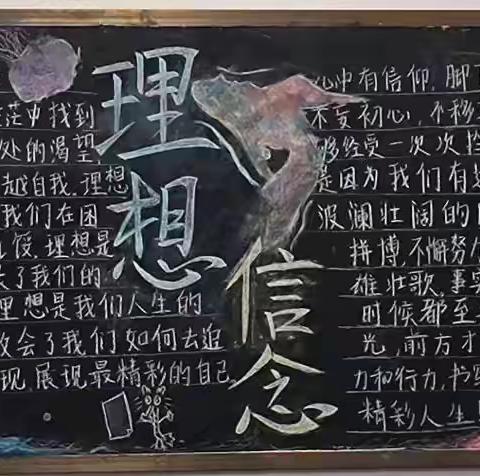 理想
信念
茫中找到
处的渴望
越自我.理想
我们在困
饭.理想是
了我们的
理想是我们人生的
教会了我们如何去追
现,展现最精彩的自己.
心中有信仰,脚下
不忘初心,不移
够经受一次次
是因为我们有
波澜壮阔的
拼搏,不懈努力
雄壮歌.事实
时候都至
光,前方才
力和行力,书写
精彩人生